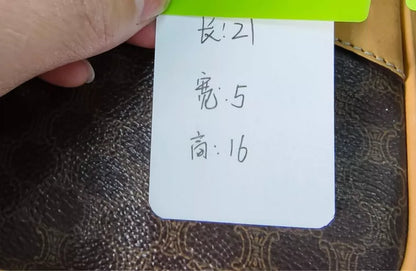 长:21
宽:5
高:16